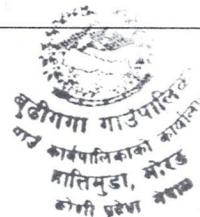 बुढीगंगा गाउँपालिका
गाउँ कार्यपालिकाको कार्यालय
हात्तिमुडा, मोरङ
कोशी प्रदेश नेपाल